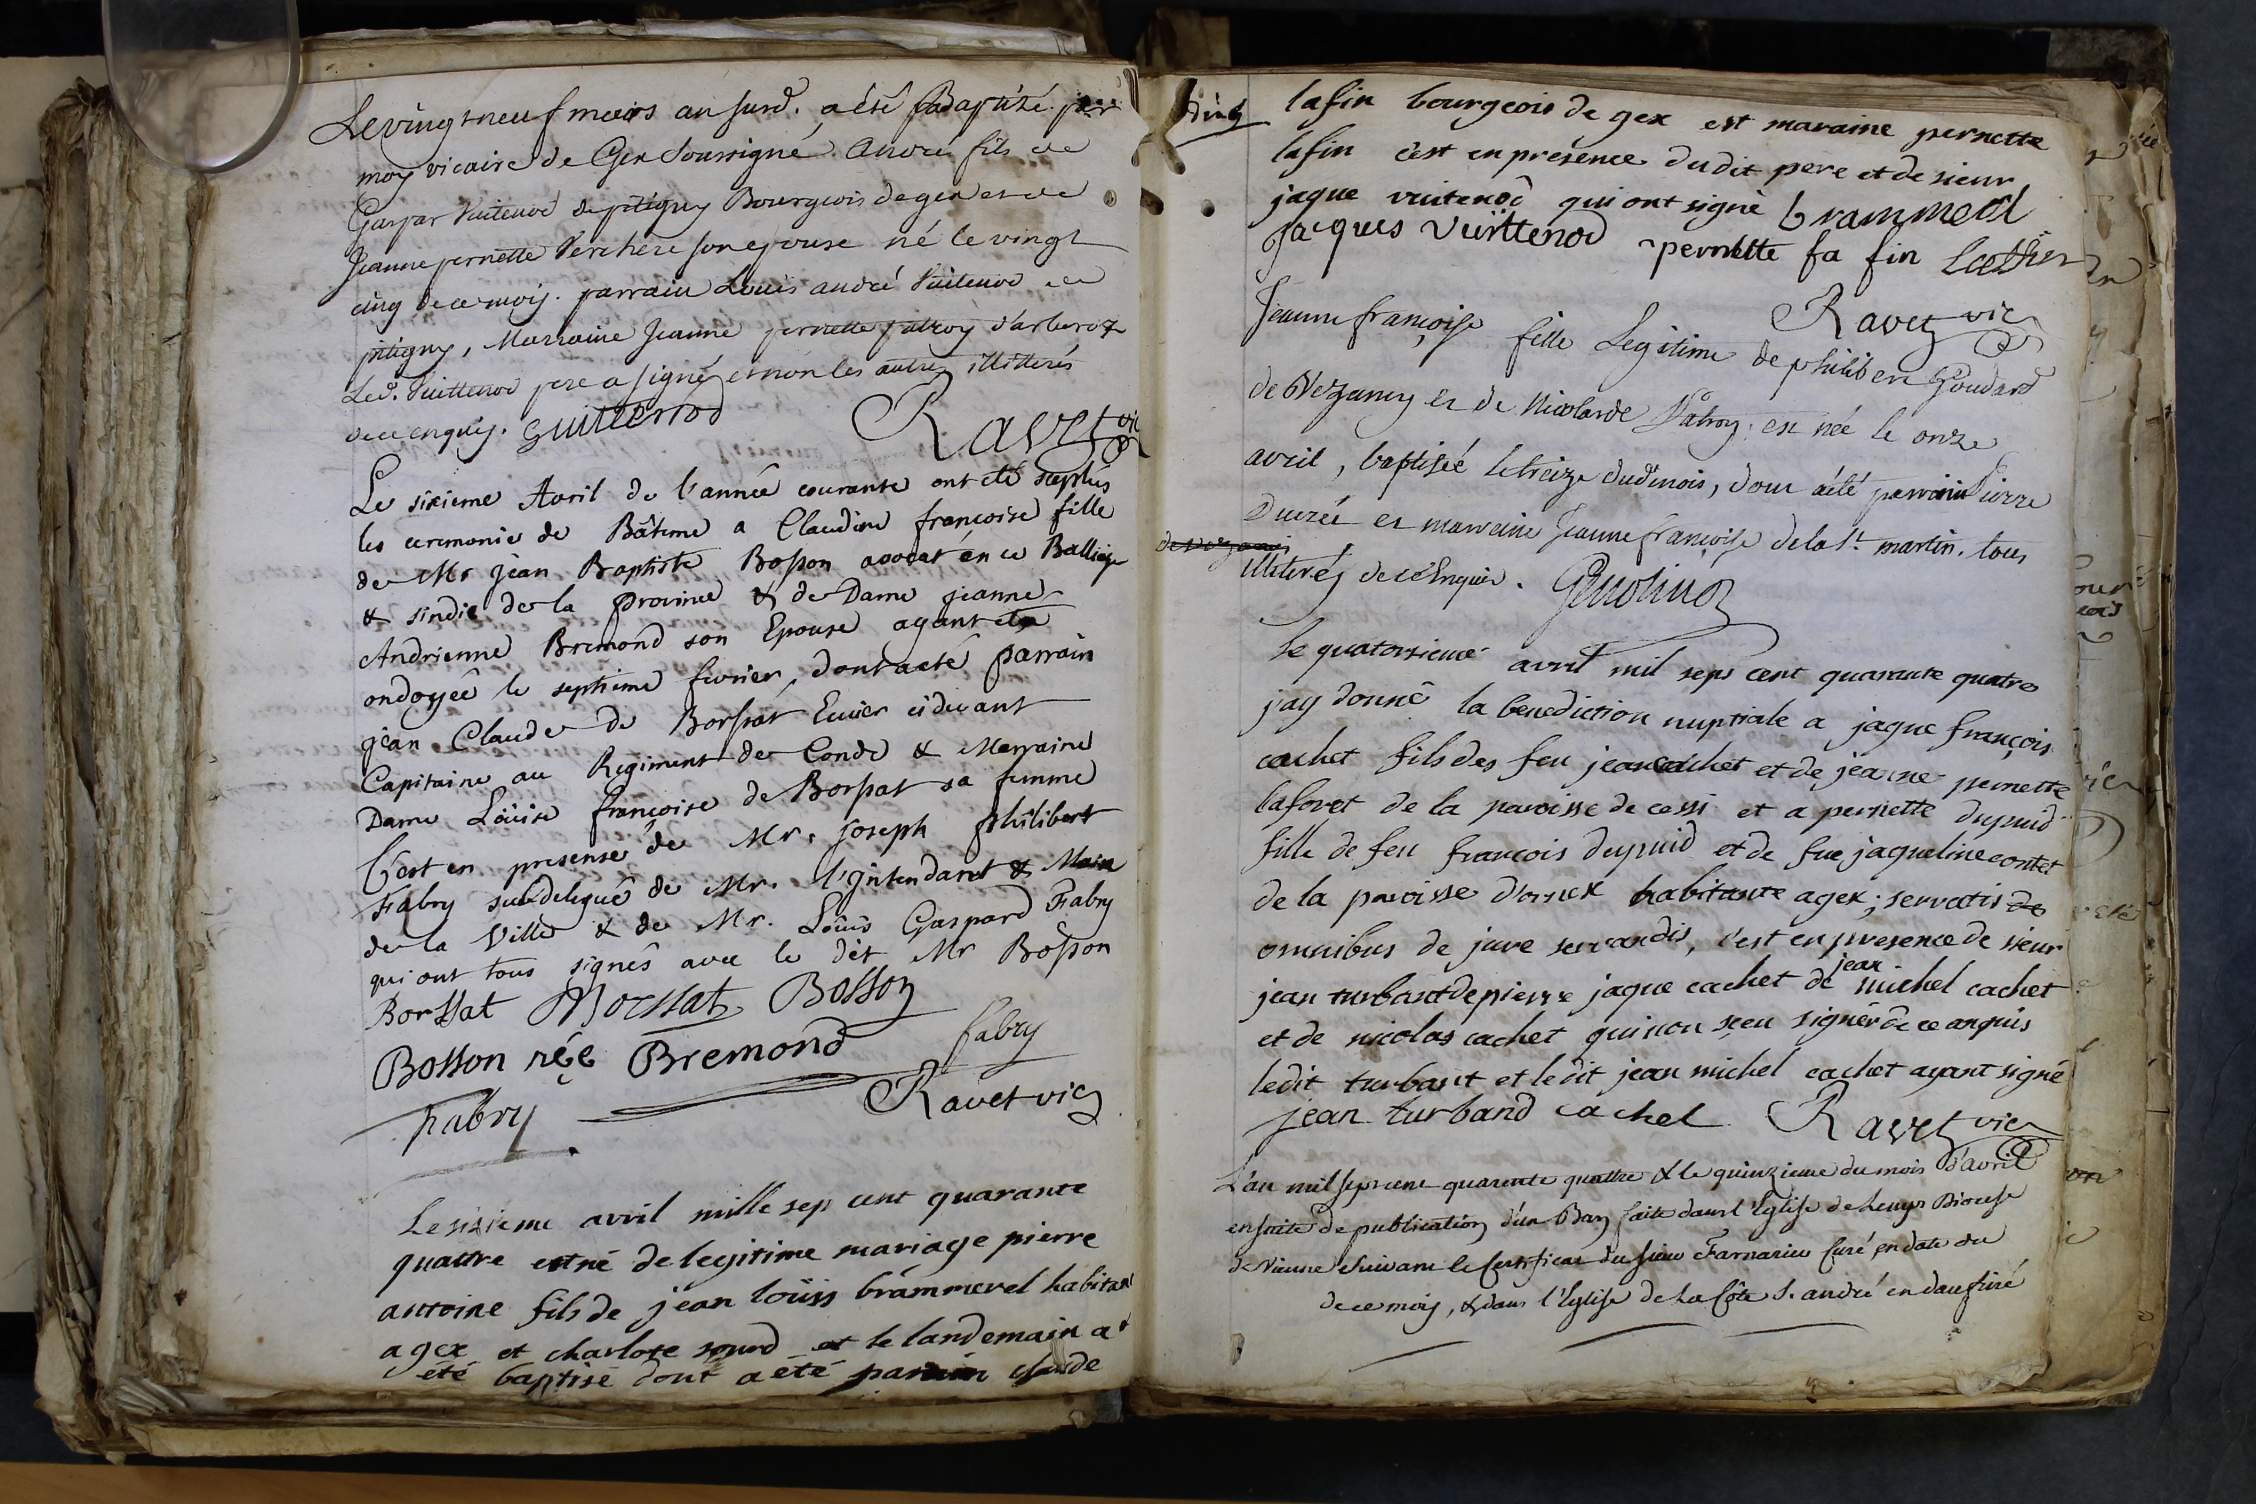 Le vingt neuf mars an susd. a été Baptizé par
moy vicaire de Gex soussigné André fils de
Gaspar Vuitenod de pitigny Bourgeois de gex et de
Jeanne pernette Verchere son epouse né le vingt
cinq de ce mois. parrain Louis andré Vuitenod de
pitigny, Marraine Jeanne pernette patroy d'arberoz
Led. Vuittenod pere a signé et non les autres illitterés
de ce enquis. Guittenod
Ravet vic
Le sixieme Avril de l'année courante ont été supplés
les ceremonie de Bâteme a Claudine françoise fille
de Mr jean Baptiste Bosson avocat én ce Balliage
& sindic de la province & de Dame jeanne
Andrienne Bremond son Epouse ayant eté
ondoyeé le septieme fevrier, dont a eté parrain
jean Claude de Borssat Ecuier cidevant
Capitaine au Regiment de Condé & Marraine
Dame Loüise françoise de Borssat sa femme
C'est en presense de Mr. joseph philibert
Fabry subdelegué de Mr. l'jntendant & Maire
de la Ville & de Mr. Loüis Gaspard Fabry
qui ont tous signés avec le dit Mr Bosson
Borssat Borssat Bosson
Bosson née Bremond fabry
Fabry Ravet vic
Le sixieme avril mille sep cent quarante
quattre est né de legitime mariage pierre
antoine fils de jean loüis brammerel habitant
a gex et charlote sourd et le landemain a
été baptisé dont a été parrain claude
lafin bourgeois de gex est maraine pernette
lafin c'est en présence dudit pere et de sieur
jaque vuitenod qui ont signé brammerel
Jacques vuittenod pernette la fin
Ravet vic
Jeanne françoise fille Legitime de philibert Goudard
de Vezancy et de Nicolarde patroy est née le onze
avril, baptisée le treize dud. mois, dont a été parrain Pierre
Ducré et marraine Jeanne françoise de la St. martin. tous
illiterés de ce Enquis.
le quatorzieme avril mil sept cent quarante quatre
j'ay donné la benediction nuptiale a jaque françois
cachet fils des feu jean cachet et de jeanne pernette
laforet de la paroisse de cessi et a pernette dupuid
fille de feu francois dupuid et de fue jaqueline contet
de la paroisse d'ornex habitante a gex; servatis de
omnibus de jure servandis, c'est en presence de sieur
jean turbant de pierre jaque cachet de jean michel cachet
et de nicolas cachet qui non sceu signér de ce anquis
ledit turbant et ledit jean michel cachet ayant signé
jean turband cachet Ravet vic
L'an mil sept cent quarente quattre & le quinzieme du mois d'avril
en suite de publication d'un Ban faite dans l'Eglise de Diocese
de Vienne suivant le certificat du sieur curé en date du
de ce mois, & dans l'Eglise de La Côte S. andré en daufiné